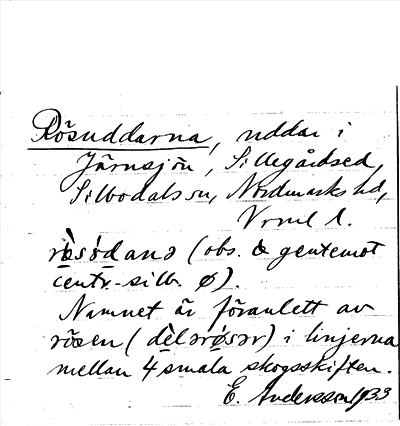 Rösuddarna, uddar i
Järnsjön, Sillegårdsed,
Silbodals sn, Nordmarks hd,
Vrml l.
rø̀søḍanə (obs. ø gentemot
centr.-silb. ø).
Namnet är föranlett av
rösen (dèlərøsər) i linjerna
mellan 4 smala skogsskiften.
E. Andersson 1933